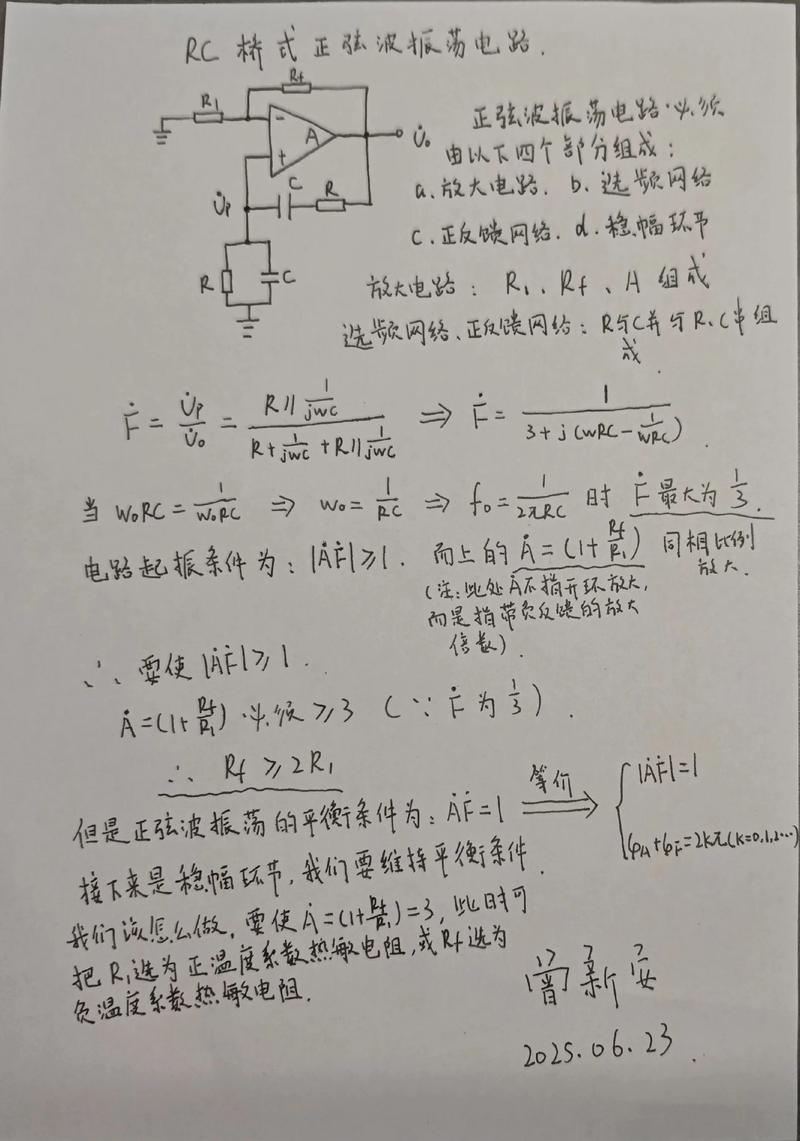 RC 桥式正弦波振荡电路.
Rf
R1
-
A
+
U̇o
U̇p
C
R
R
C
正弦波振荡电路必须
由以下四个部分组成：
a.放大电路. b.选频网络
c.正反馈网络. d.稳幅环节
放大电路：R1、Rf、A 组成
选频网络、正反馈网络：R与C并与R、C串组
成.
Ḟ = U̇p/U̇o = (R∥1/jwc)/(R+1/jwc+R∥1/jwc) ⇒ Ḟ = 1/(3+j(wRC-1/wRC)).
当 w₀RC = 1/w₀RC ⇒ w₀ = 1/RC ⇒ f₀ = 1/2πRC 时 Ḟ 最大为 1/3.
电路起振条件为：|ȦḞ|≥1. 而上的 Ȧ = (1+Rf/R1) 同相比例
放大.
(注：此处Ȧ不指开环放大,
而是指带负反馈的放大
倍数).
∴ 要使 |ȦḞ|≥1.
Ȧ=(1+Rf/R1) 必须 ≥3 (∵ Ḟ 为 1/3).
∴ Rf ≥ 2R1
但是正弦波振荡的平衡条件为：ȦḞ=1 等价⇒ { |ȦḞ|=1
φA+φF=2Kπ(K=0,1,2…)
接下来是稳幅环节, 我们要维持平衡条件.
我们该怎么做, 要使 Ȧ=(1+Rf/R1)=3, 此时可
把R1选为正温度系数热敏电阻, 或Rf选为
负温度系数热敏电阻.
新安
2025.06.23.